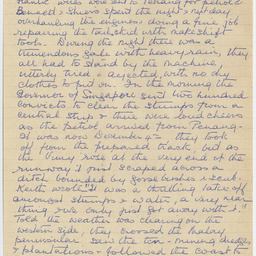 wires were sent to Penang for petrol.
Bennett & Shiers spent the night & next day
overhauling the engines: doing a fine job
repairing the tail skid with makeshift
tools. During the night there was a
tremendous gale with heavy rain, they
all had to stand by the machine,
utterly tired & dejected, with no dry
clothes to put on. In the morning the
Governor of Singapore sent two hundred
convicts to clear the stumps from a
central strip & there were loud cheers
as the petrol arrived from Penang.
It was now December 4th - they took
off from the prepared track, but as
the Vimy rose at the very end of the
runway it just scraped across a
ditch bounded by gorse bushes & scrub.
Keith wrote "It was a thrilling take off
amongst stumps & water, a very near
thing & we only just got away with it."
Told the weather was clearing on the
western side, they crossed the Malay
peninsular saw the tin-mining dredges
& plantations - followed the coast to